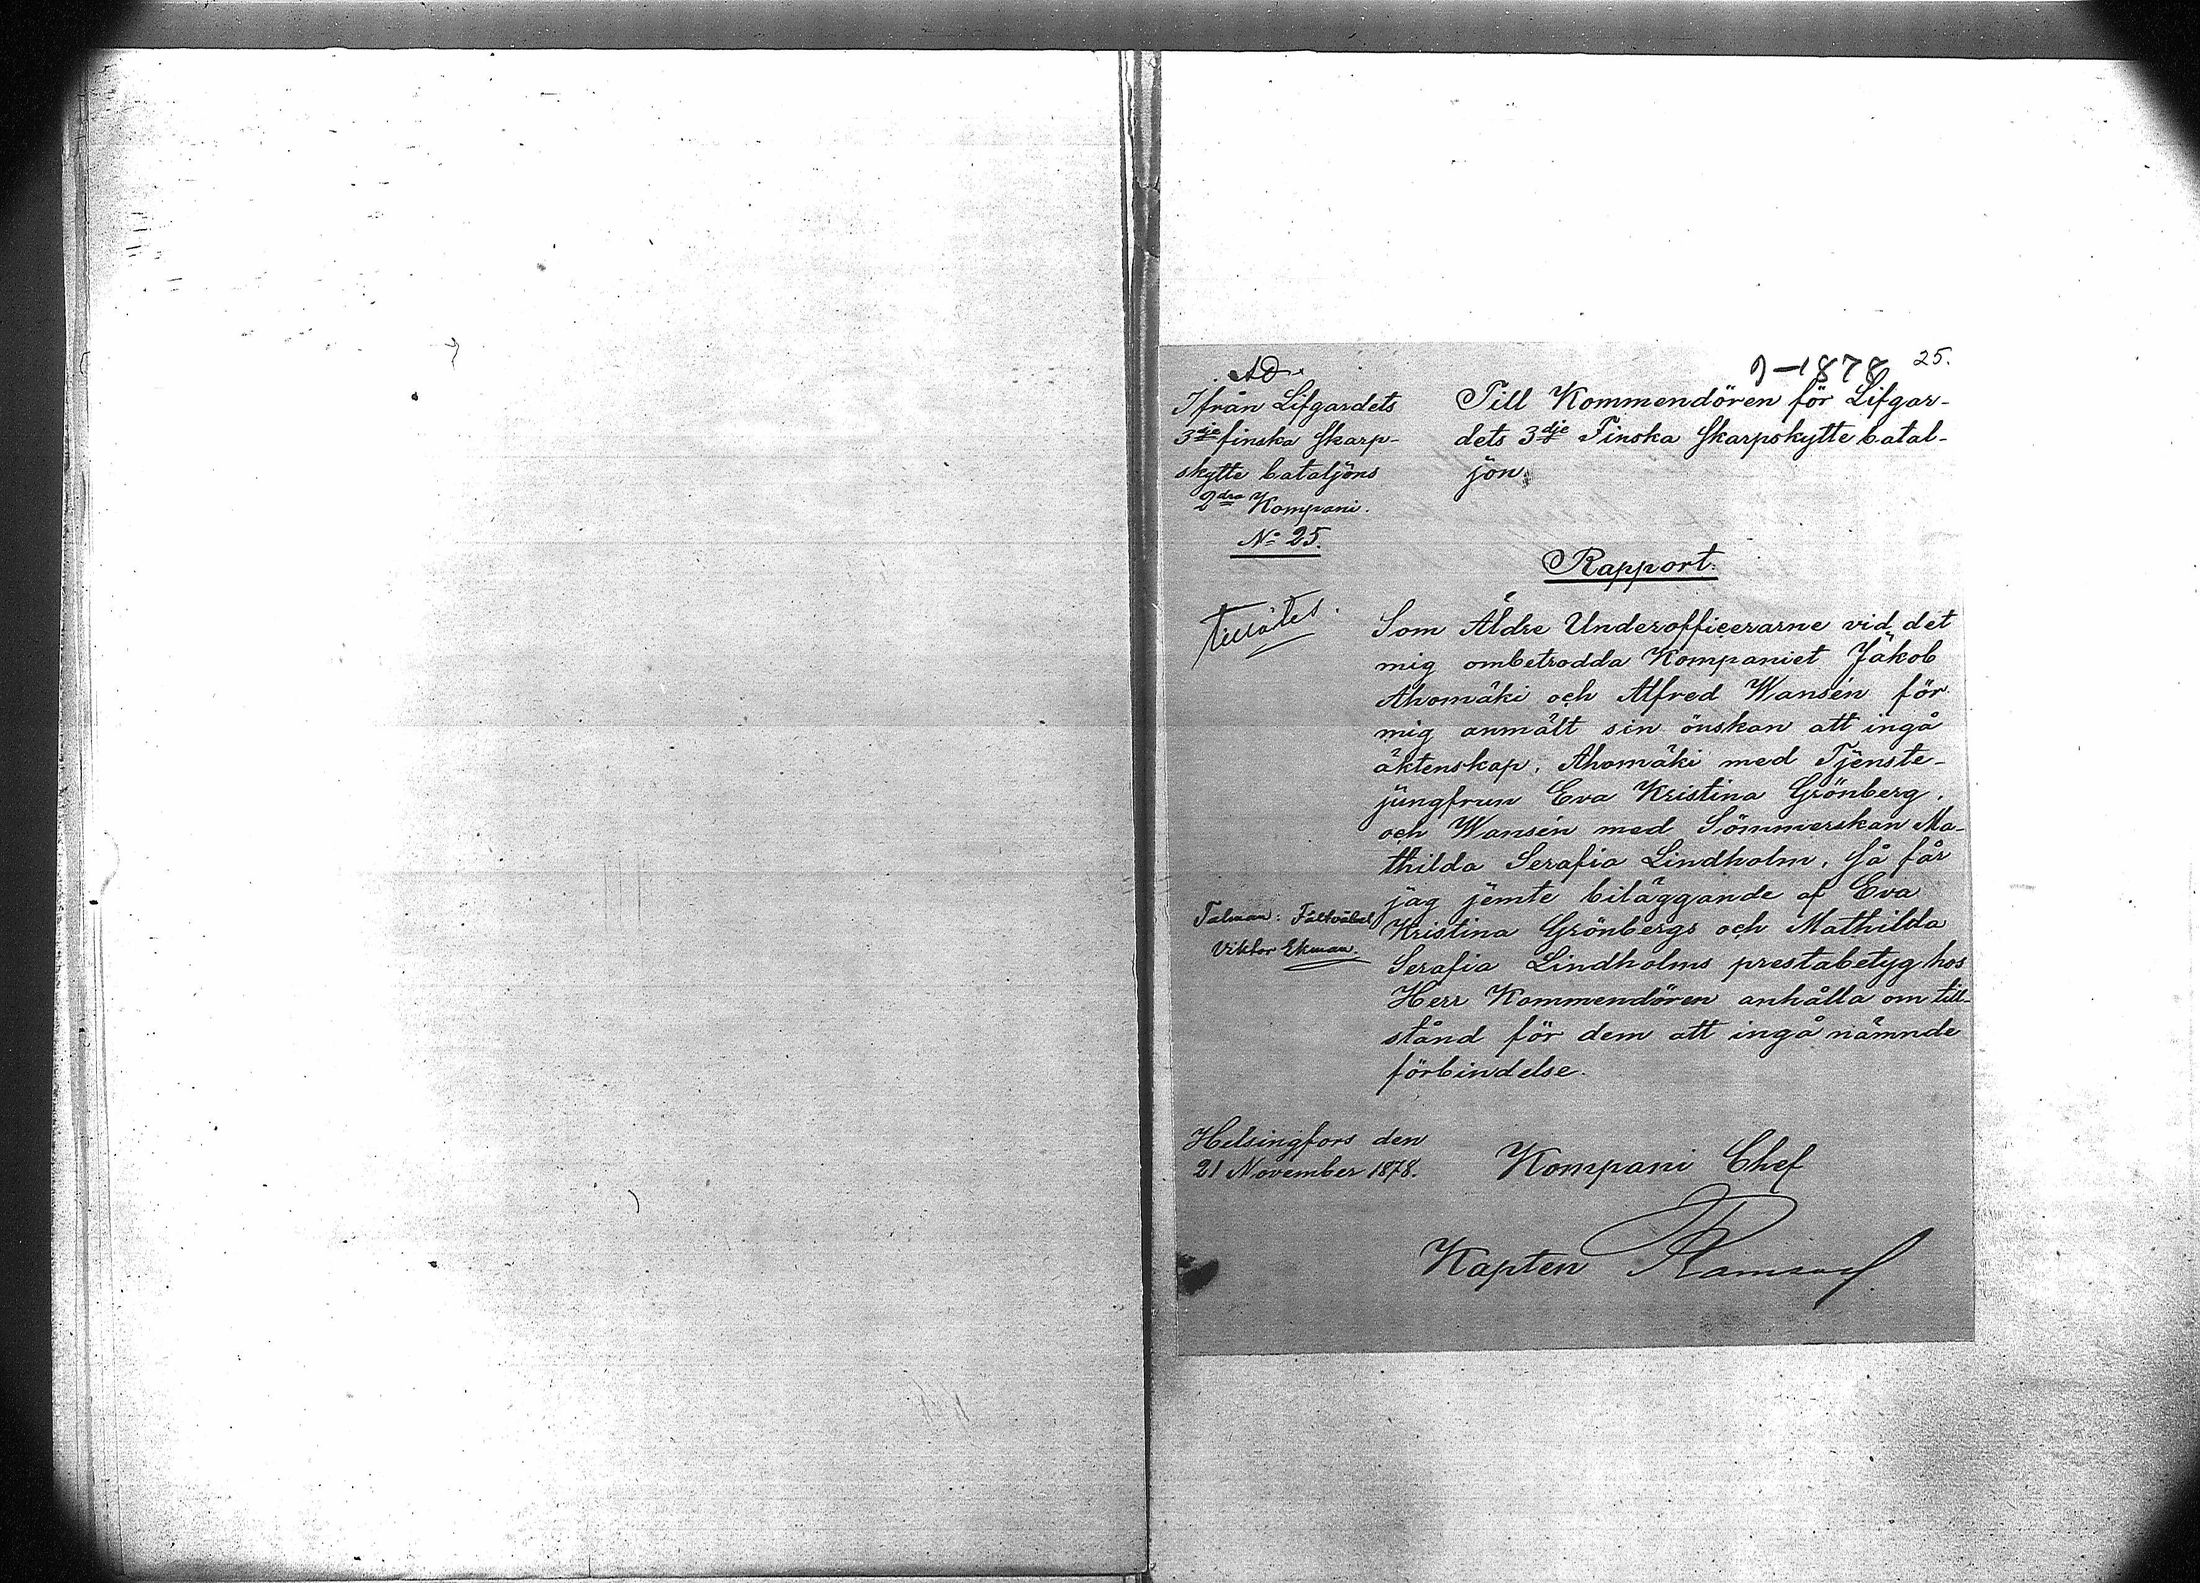 25.
-1878
AD.
Ifrån Lifgardets
3dje finska skarp-
skytte bataljöns
2dra Kompani.
No 25.
Till Kommendören för Lifgar-
dets 3dje Finska skarpskytte batal-
jön.
Rapport.
Tillåtes.
Som Äldre Underofficerarne vid det
mig ombetrodda Kompaniet Jakob
Ahomäki och Alfred Wansén för
mig anmält sin önskan att ingå
äktenskap, Ahomäki med Tjenste-
jungfrun Eva Kristina Grönberg,
och Wansén med Sömmerskan Ma-
thilda Serafia Lindholm, så får
jag jemte biläggande af Eva
Kristina Grönbergs och Mathilda
Serafia Lindholms prestabetyg hos
Herr Kommendören anhålla om till-
stånd för dem att ingå nämnde
förbindelse.
Talman: Fältväbel
Viktor Ekman.
Helsingfors den
21 November 1878.
Kompani Chef
Kapten Ramsay